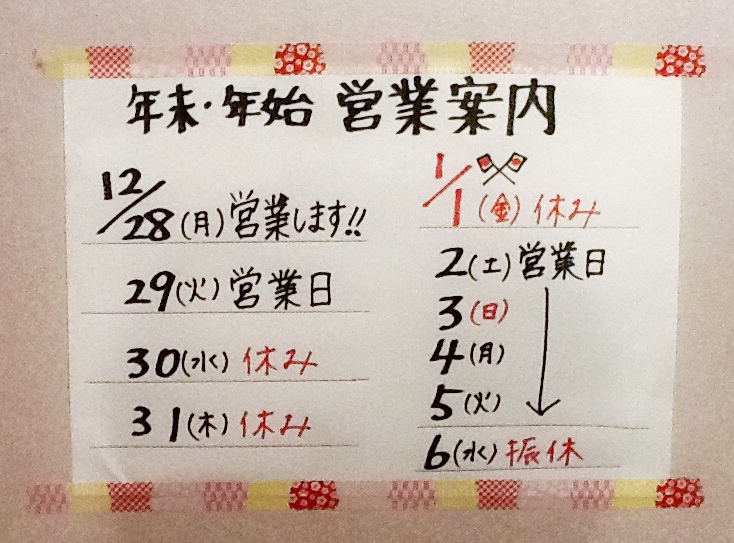 年末・年始 営業案内
12/28(月)営業します!!
29(火)営業日
30(水)休み
31(木)休み
1/1(金)休み
2(土)営業日
3(日)
4(月)
5(火)
6(水)振休